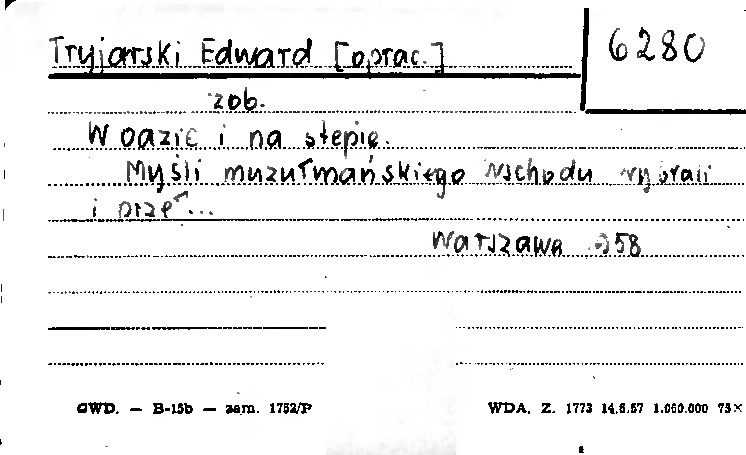 Tryjarski Edward [oprac.] 6280
zob.
W oazie i na stepie.
Myśli muzułmańskiego wschodu wybrali
i przeł...
Warszawa 1958
GWD. — B-15b — zam. 1752/P
WDA, Z. 1773 14.6.57 1.060.000 75×